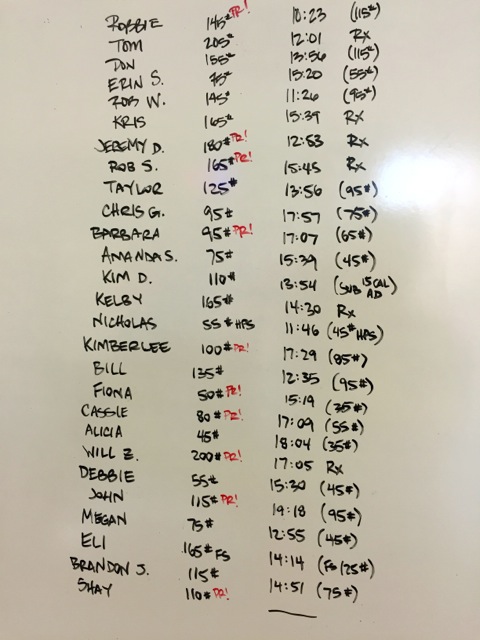 ROBBIE 145# PR! 10:23 (115#)
TOM 205# 12:01 Rx
DON 155# 13:56 (115#)
ERIN S. 75# 15:20 (55#)
ROB W. 145# 11:26 (95#)
KRIS 165# 15:39 Rx
JEREMY D. 180# PR! 12:53 Rx
ROB S. 165# PR! 15:45 Rx
TAYLOR 125# 13:56 (95#)
CHRIS G. 95# 17:57 (75#)
BARBARA 95# PR! 17:07 (65#)
AMANDA S. 75# 15:39 (45#)
KIM D. 110# 13:54 (SUB 15 CAL AD)
KELBY 165# 14:30 Rx
NICHOLAS 55# HPS 11:46 (45# HPS)
KIMBERLEE 100# PR! 17:29 (85#)
BILL 135# 12:35 (95#)
FIONA 50# PR! 15:19 (35#)
CASSIE 80# PR! 17:09 (55#)
ALICIA 45# 18:04 (35#)
WILL Z. 200# PR! 17:05 Rx
DEBBIE 55# 15:30 (45#)
JOHN 115# PR! 19:18 (95#)
MEGAN 75# 12:55 (45#)
ELI 165# FS 14:14 (FS/125#)
BRANDON J. 115# 14:51 (75#)
SHAY 110# PR! —